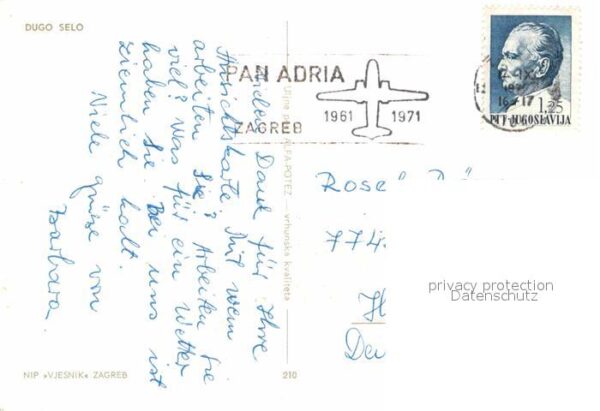 DUGO SELO
Vielen Dank für Ihre
Ansichtskarte. Mit wem
arbeiten Sie? Arbeiten Sie
viel? Was für ein Wetter
haben Sie. Bei uns ist
ziemlich kalt.
Viele grüsse von
Barbara
PAN ADRIA
ZAGREB
1961 1971
1,25
PTT JUGOSLAVIJA
ALFA-POTEZ — vrhunska kvaliteta
Rose
774
privacy protection
Datenschutz
NIP »VJESNIK« ZAGREB
210